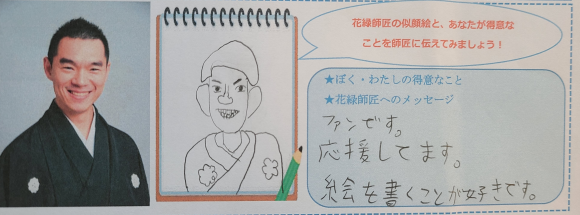 花緑師匠の似顔絵と、あなたが得意な
ことを師匠に伝えてみましょう！
★ぼく・わたしの得意なこと
★花緑師匠へのメッセージ
ファンです。
応援してます。
絵を書くことが好きです。